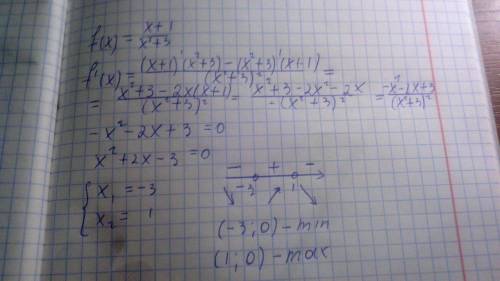 f(x) = x+1 / x²+3
f'(x) = (x+1)'(x²+3)-(x²+3)'(x+1) / (x²+3)² =
= x²+3-2x(x+1) / (x²+3)² = x²+3-2x²-2x / -(x²+3)² = -x²-2x+3 / (x²+3)²
-x²-2x+3 = 0
x²+2x-3 = 0
{ x₁ = -3
x₂ = 1
- + -
-3 1
(-3; 0) - min
(1; 0) - max